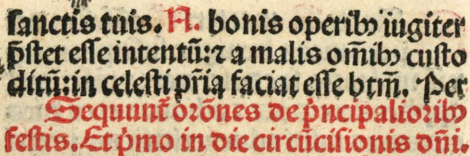 sanctis tuis. A. bonis operibꝫ iugiter
p̃stet esse intentũ: ⁊ a malis om̃ibꝫ custo
ditũ: in celesti pr̃ia faciat esse btm̃. Per
Sequunt᷑ orõnes de p̃ncipalioribꝫ
festis. Et p̓mo in die circũcisionis dñi.